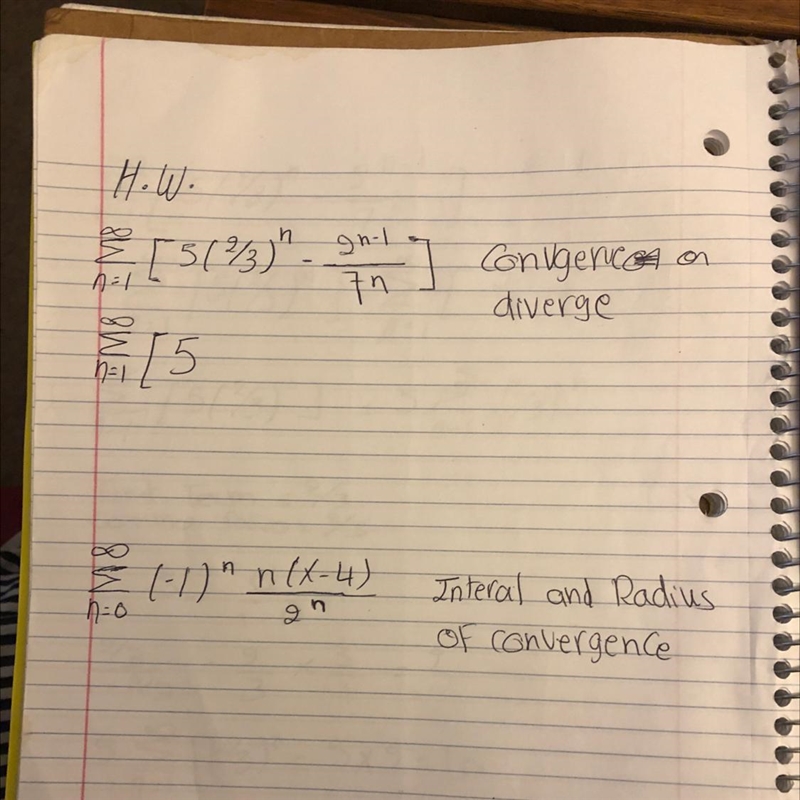 H.W.
∞ Σ n=1 [ 5(2/3)^n - 2^{n-1} / 7^n ] Convgence on
diverge
∞ Σ n=1 [ 5
∞ Σ n=0 (-1)^n n(x-4) / 2^n Interal and Radius
OF convergence